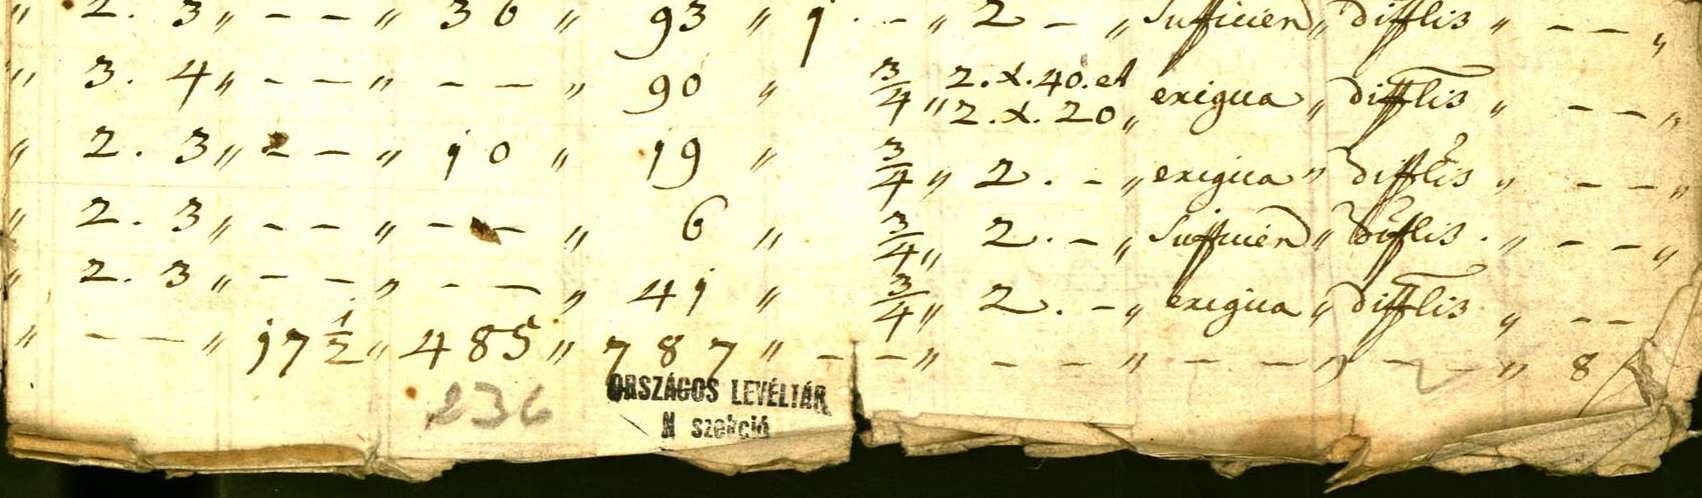 " 2. 3 " - - " 36 " 93 " 1. - " 2 - " Sufficien " difflis " - - "
" 3. 4 " - - " - - " 90 " 3/4 " 2. x. 40. et 2. x. 20 " exigua " difflis " - - "
" 2. 3 " - - " 10 " 19 " 3/4 " 2. - " exigua " difflis " - - "
" 2. 3 " - - " - - " 6 " 3/4 " 2. - " Sufficien " difflis. " - - "
" 2. 3 " - - " - - " 41 " 3/4 " 2. - " exigua " difflis " - -
" - - " 17 1/2 " 485 " 787 " - - " - - " - - " - - " 8
236
ORSZÁGOS LEVÉLTÁR
N szekció